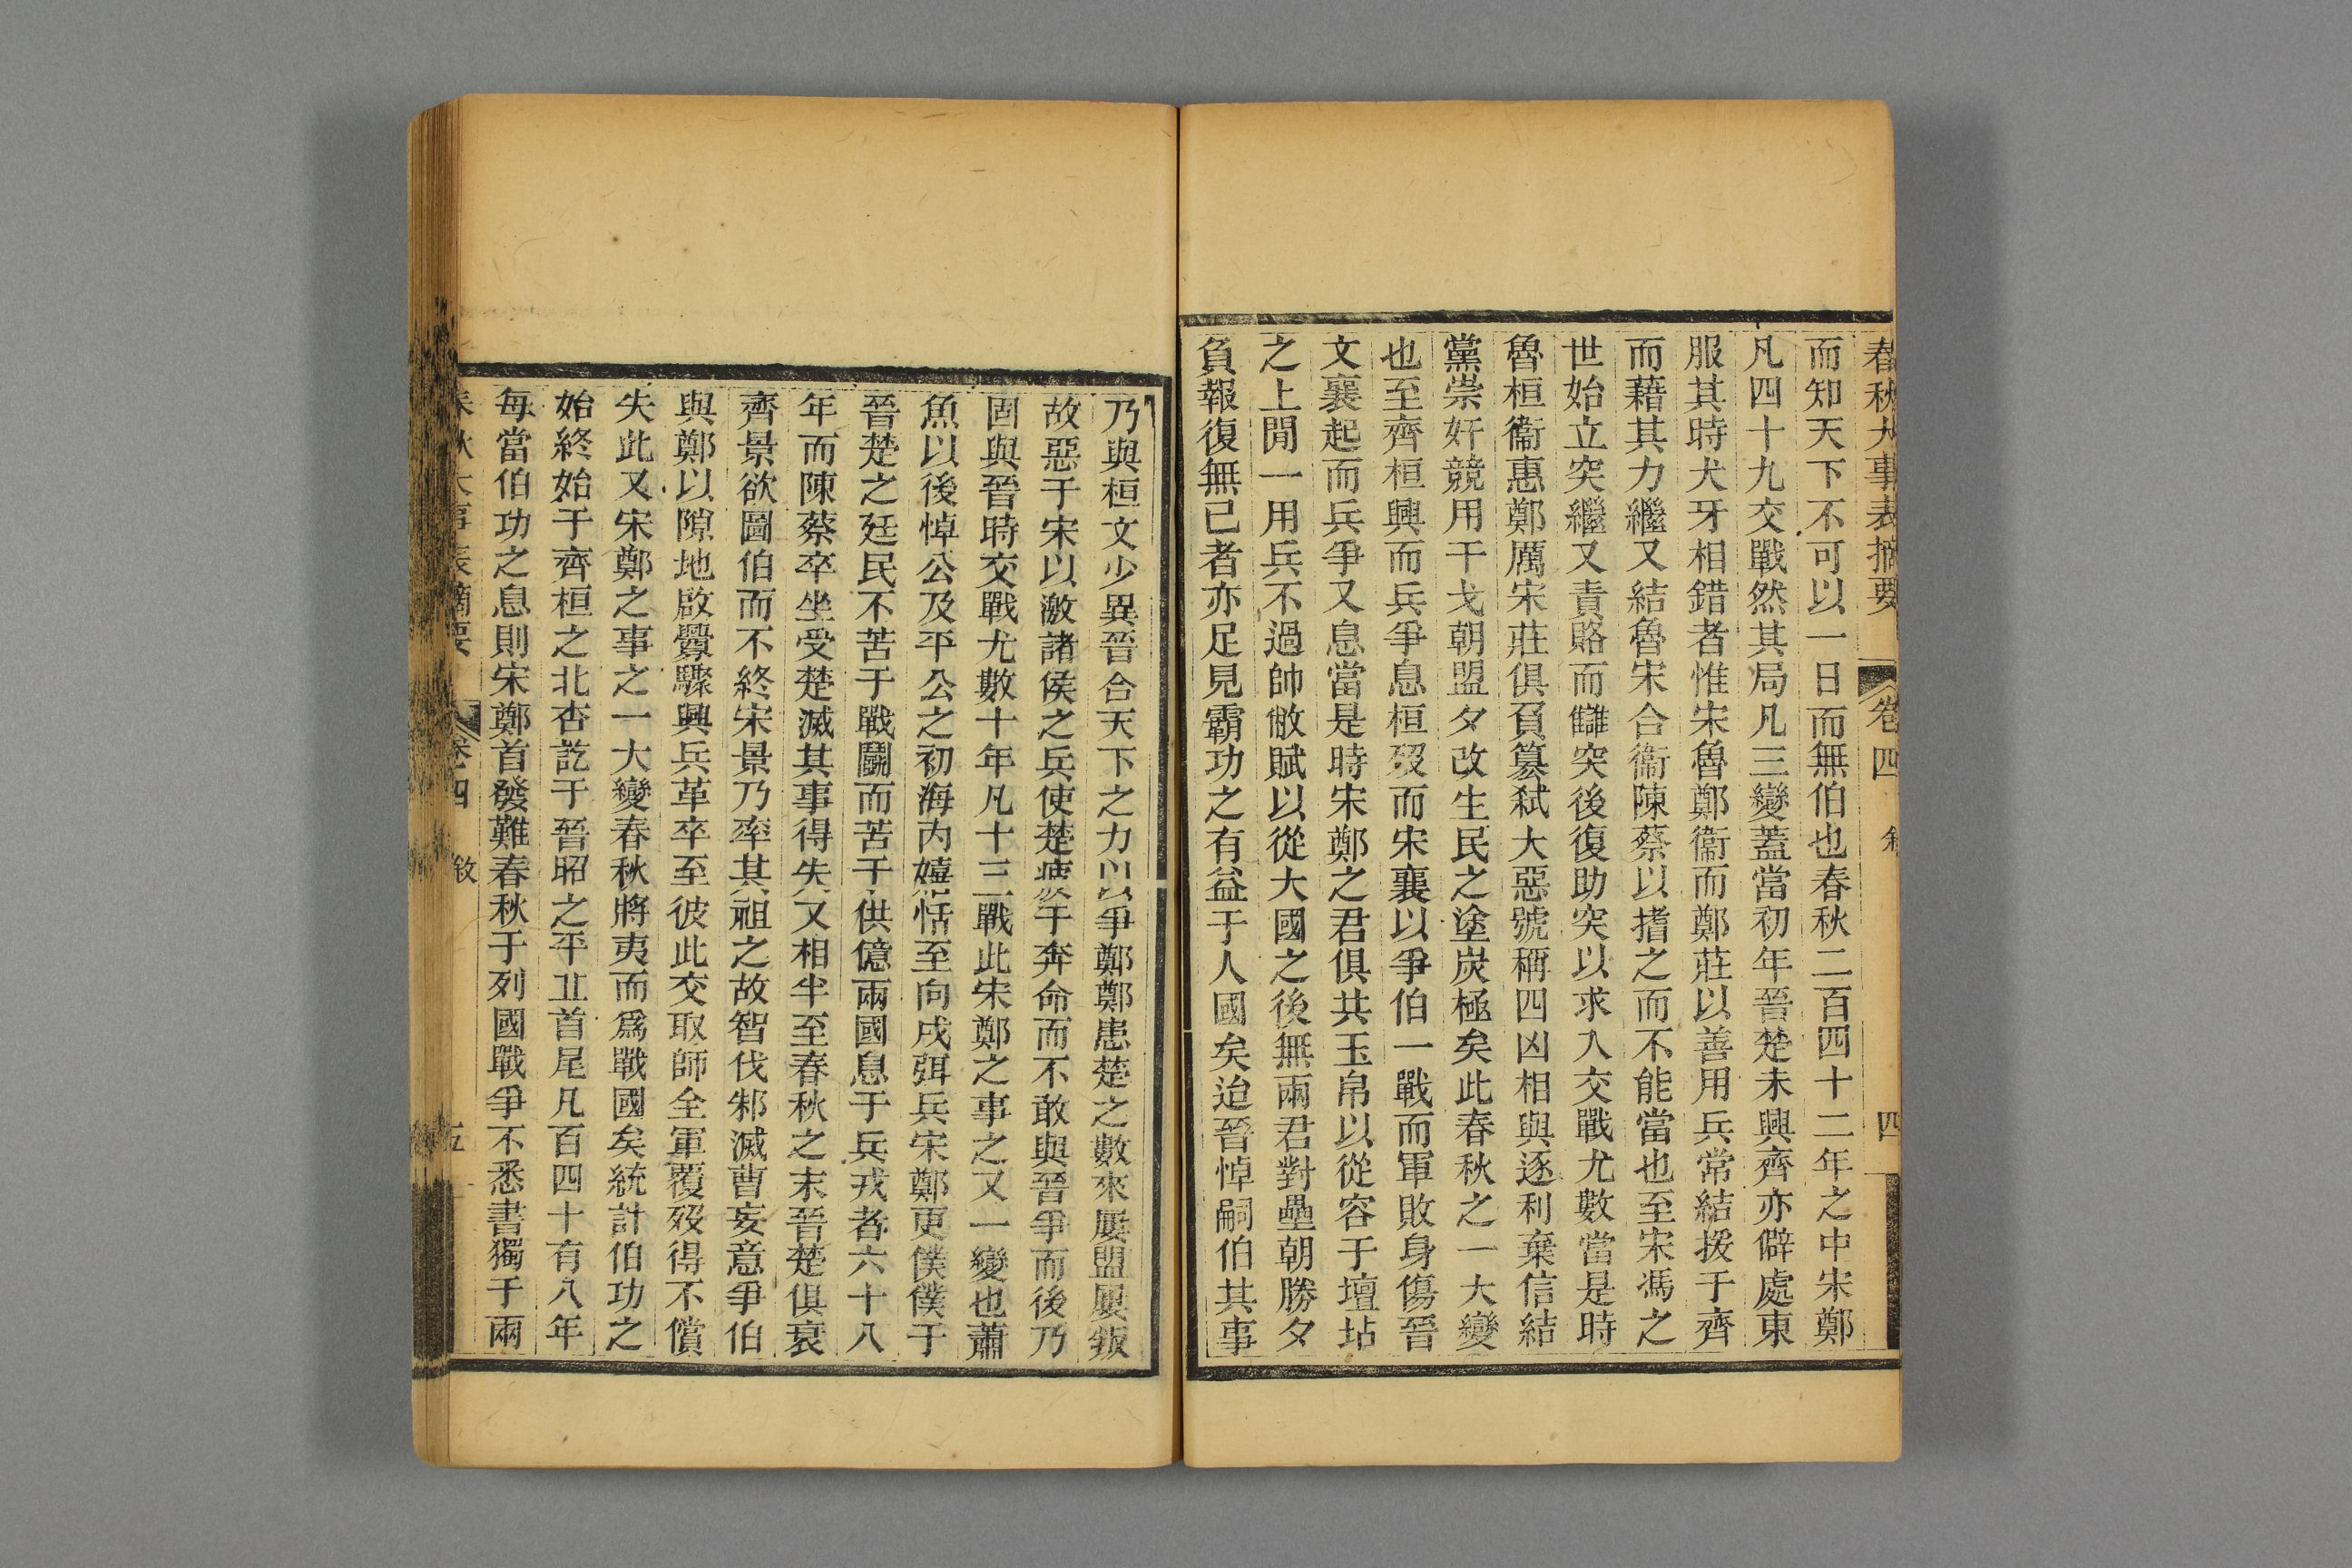 春秋大事表摘要 卷四 敘 四
而知天下不可以一日而無伯也春秋二百四十二年之中宋鄭
凡四十九交戰然其局凡三變蓋當初年晉楚未興齊亦僻處東
服其時犬牙相錯者惟宋魯鄭衞而鄭莊以善用兵常結援于齊
而藉其力繼又結魯宋合衞陳蔡以搘之而不能當也至宋馮之
世始立突繼又責賂而讎突後復助突以求入交戰尤數當是時
魯桓衞惠鄭厲宋莊俱負篡弒大惡號稱四凶相與逐利棄信結
黨崇奸競用干戈朝盟夕改生民之塗炭極矣此春秋之一大變
也至齊桓興而兵爭息桓歿而宋襄以爭伯一戰而軍敗身傷晉
文襄起而兵爭又息當是時宋鄭之君俱共玉帛以從容于壇坫
之上閒一用兵不過帥敝賦以從大國之後無兩君對壘朝勝夕
負報復無已者亦足見霸功之有益于人國矣迨晉悼嗣伯其事
乃與桓文少異晉合天下之力以爭鄭鄭患楚之數來屢盟屢叛
故惡于宋以激諸侯之兵使楚疲于奔命而不敢與晉爭而後乃
固與晉時交戰尤數十年凡十三戰此宋鄭之事之又一變也蕭
魚以後悼公及平公之初海內嬉恬至向戌弭兵宋鄭更僕僕于
晉楚之廷民不苦于戰鬬而苦于供億兩國息于兵戎者六十八
年而陳蔡卒坐受楚滅其事得失又相半至春秋之末晉楚俱衰
齊景欲圖伯而不終宋景乃率其祖之故智伐邾滅曹妄意爭伯
與鄭以隙地啟釁驟興兵革卒至彼此交取師全軍覆歿得不償
失此又宋鄭之事之一大變春秋將夷而爲戰國矣統計伯功之
始終始于齊桓之北杏訖于晉昭之平丘首尾凡百四十有八年
每當伯功之息則宋鄭首發難春秋于列國戰爭不悉書獨于兩
春秋大事表摘要 卷四 敘 五